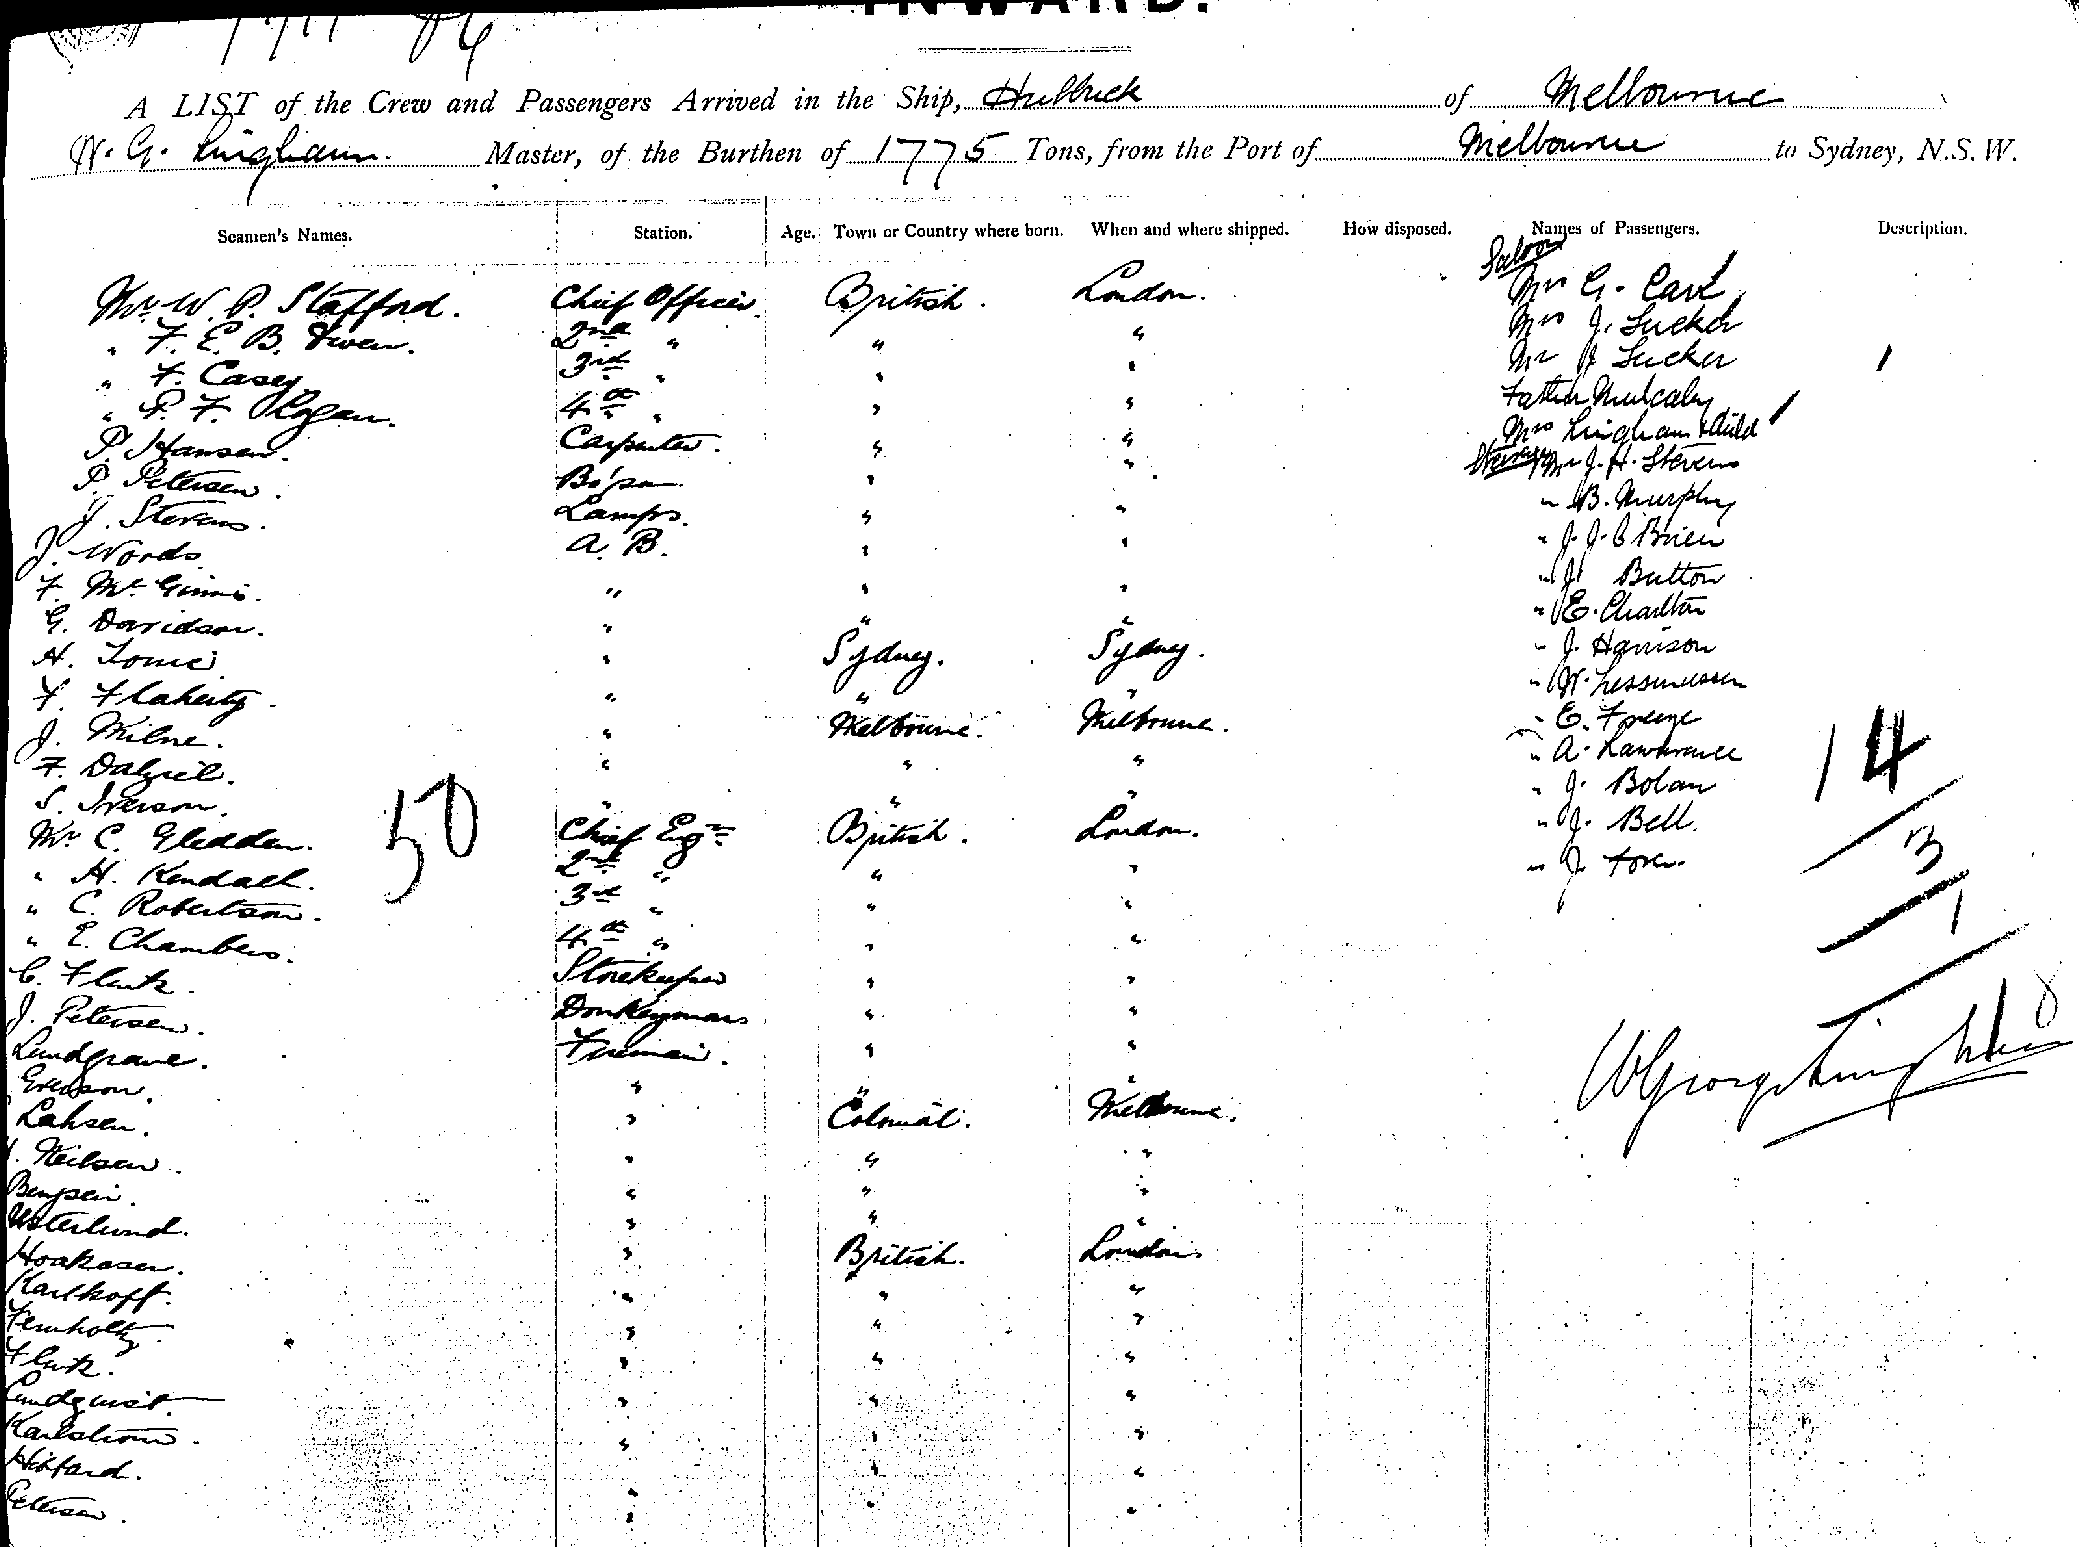 INWARD.
A LIST of the Crew and Passengers Arrived in the Ship, Hulbuck of Melbourne
W. G. Lingham. Master, of the Burthen of 1775 Tons, from the Port of Melbourne to Sydney, N.S.W.
Seamen's Names. Station. Age. Town or Country where born. When and where shipped. How disposed. Names of Passengers. Description.
Saloon
Mr. W. P. Stafford. Chief Officer. British. London. Mrs G. Cave
" F. E. B. Owen. 2nd " " " Mrs J. Tucker
" F. Casey 3rd " " " Mr J Tucker 1
" P. F. Logan. 4th " " " Father Mulcahy
P. Hansen. Carpenter. " " Mrs Lingham & Child
P. Petersen. Bo'sn " " Steerage Mr J. H. Stevens
J. Stevens. Lamps. " " " B. Murphy
J. Woods. A. B. " " " J. J. O'Brien
F. McGinnis. " " " " J. Button
G. Davidson. " " " " E. Charlton
H. " Sydney. Sydney. " J. Harrison
F. Flaherty. " " " " W.
J. Milne. " Melbourne. Melbourne. " E.
F. Dalziel. " " " " A. Lawrance 14
S. Iverson. " " " " J. Bolan
Mr. C. Gledden. 50 Chief Engr British. London. " J. Bell. 3
" H. Kendall. 2nd " " " " J.
" C. Robertson. 3rd " " " 1
" E. Chambers. 4th " " "
C. Flink. Storekeeper " " 18
J. Petersen. Donkeyman " "
Lundgrave. Fireman. " " W George Lingham
Evenson. " " "
Lahsen. " Colonial. Melbourne.
Neilsen. " " "
" " "
Usterlund. " " "
Hoakasen. " British. London.
Karlkoff. " " "
Fernholtz " " "
Flink. " " "
Lundquist. " " "
Karlstrom. " " "
Hibbard. " " "
Petersen. " " "
"